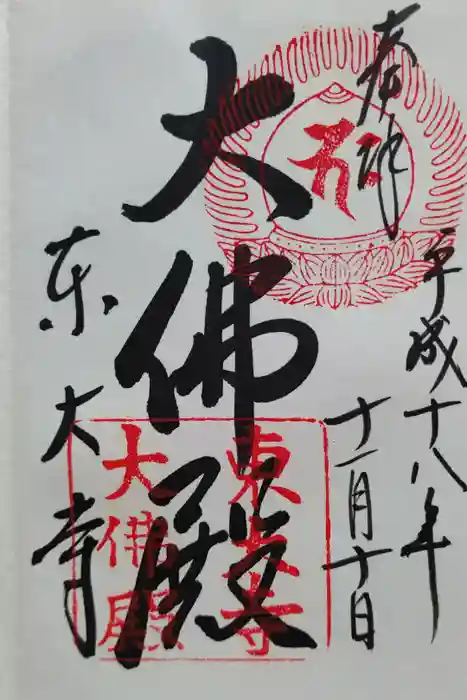 奉拝
平成十八年
十一月十日
大佛殿
東大寺
東大寺
大佛殿